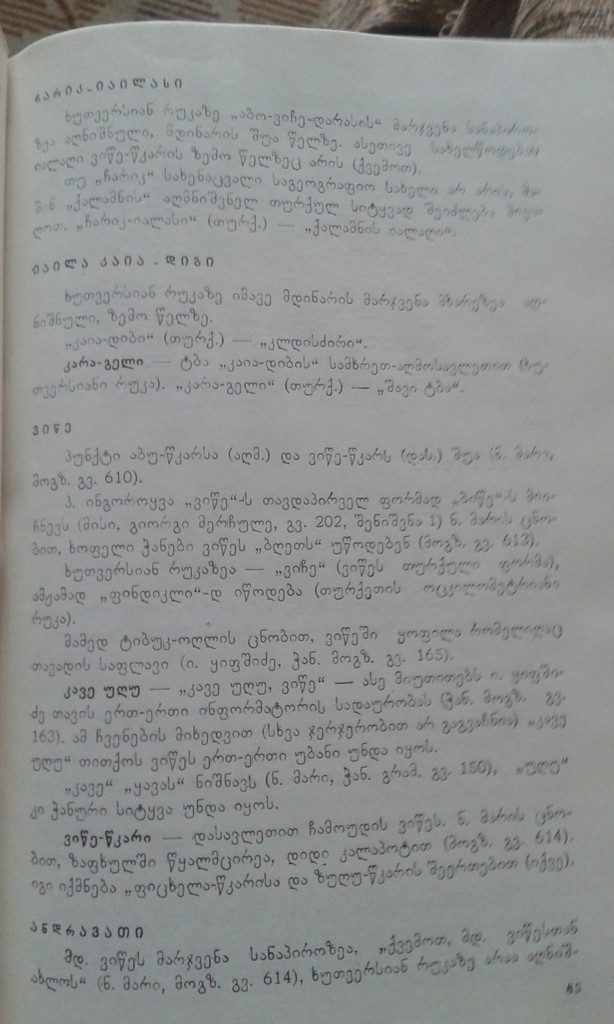 ჩარიკ-იაილასი
ხუთვერსიან რუკაზე „აბო-ვიჩე-დარასის“ მარჯვენა სანაპირო-
ზეა აღნიშნული, მდინარის შუა წელზე. ასეთივე სახელწოდების
იალაღი ვიწე-წკარის ზემო წელზეც არის (ქვემოთ).
თუ „ჩარიკ“ სახენაცვალი საგეოგრაფიო სახელი არ არის, მა-
შინ „ქალამნის“ აღმნიშვნელ თურქულ სიტყვად შეიძლება მივი-
ღოთ. „ჩარიკ-იალასი“ (თურქ.) — „ქალამნის იალაღი“.
იაილა კაია-დიბი
ხუთვერსიან რუკაზე იმავე მდინარის მარჯვენა მხარეზეა აღ-
ნიშნული, ზემო წელზე.
„კაია-დიბი“ (თურქ.) — „კლდისძირი“.
კარა-გელი — ტბა „კაია-დიბის“ სამხრეთ-აღმოსავლეთით (ხუ-
თვერსიანი რუკა). „კარა-გელი“ (თურქ.) — „შავი ტბა“.
ვიწე
პუნქტი აბუ-წკარსა (აღმ.) და ვიწე-წკარს (დას.) შუა (ნ. მარი,
მოგზ. გვ. 610).
პ. ინგოროყვა „ვიწე“-ს თავდაპირველ ფორმად „ბიწე“-ს მი-
ჩნევს (მისი, გიორგი მერჩულე, გვ. 202, შენიშვნა 1) ნ. მარის ცნო-
ბით, ხოფელი ჭანები ვიწეს „ბღეთს“ უწოდებენ (მოგზ. გვ. 613).
ხუთვერსიან რუკაზეა — „ვიჩე“ (ვიწეს თურქული ფორმა),
ამჟამად „ფინდიკლი“-დ იწოდება (თურქეთის ოცკილომეტრიანი
რუკა).
მამედ ტიბუკ-ოღლის ცნობით, ვიწეში ყოფილა რომელიღაც
თავადის საფლავი (ი. ყიფშიძე, ჭან. მოგზ. გვ. 165).
კავე უღუ — „კავე უღუ, ვიწე“ — ასე მიუთითებს ი. ყიფში-
ძე თავის ერთ-ერთი ინფორმატორის სადაურობას (ჭან. მოგზ. გვ.
163). ამ ჩვენების მიხედვით (სხვა ჯერჯერობით არ გაგვაჩნია) „კავე
უღუ“ თითქოს ვიწეს ერთ-ერთი უბანი უნდა იყოს.
„კავე“ „ყავას“ ნიშნავს (ნ. მარი, ჭან. გრამ. გვ. 150), „უღუ“
კი ჭანური სიტყვა უნდა იყოს.
ვიწე-წკარი — დასავლეთით ჩამოუდის ვიწეს. ნ. მარის ცნო-
ბით, ზაფხულში წყალმცირეა, დიდი კალაპოტით (მოგზ. გვ. 614).
იგი იქმნება „ფიცხელა-წკარისა და ზუღუ-წკარის შეერთებით (იქვე).
ანდრავათი
მდ. ვიწეს მარჯვენა სანაპიროზეა, „ქვემოთ, მდ. ვიწესთან
ახლოს“ (ნ. მარი, მოგზ. გვ. 614), ხუთვერსიან რუკაზე არაა აღნიშ-
85